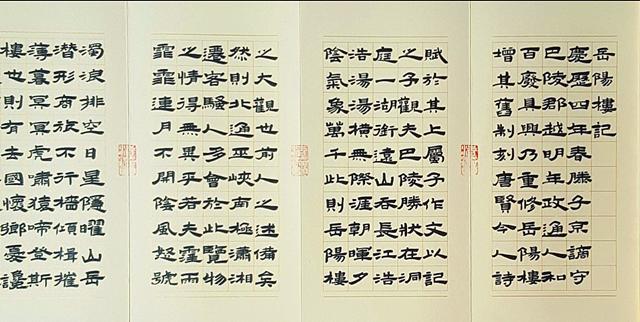 岳陽樓記
慶歷四年春滕子京謫守
巴陵郡越明年政通人和
百廢具興乃重修岳陽樓
增其舊制刻唐賢今人詩
賦於其上屬予作文以記
之予觀夫巴陵勝狀在洞
庭一湖銜遠山吞長江浩
浩湯湯橫無際涯朝暉夕
陰氣象萬千此則岳陽樓
之大觀也前人之述備矣
然則北通巫峽南極瀟湘
遷客騷人多會於此覽物
之情得無異乎若夫霪雨
霏霏連月不開陰風怒號
濁浪排空日星隱曜山岳
潛形商旅不行檣傾楫摧
薄暮冥冥虎嘯猿啼登斯
樓也則有去國懷鄉憂讒